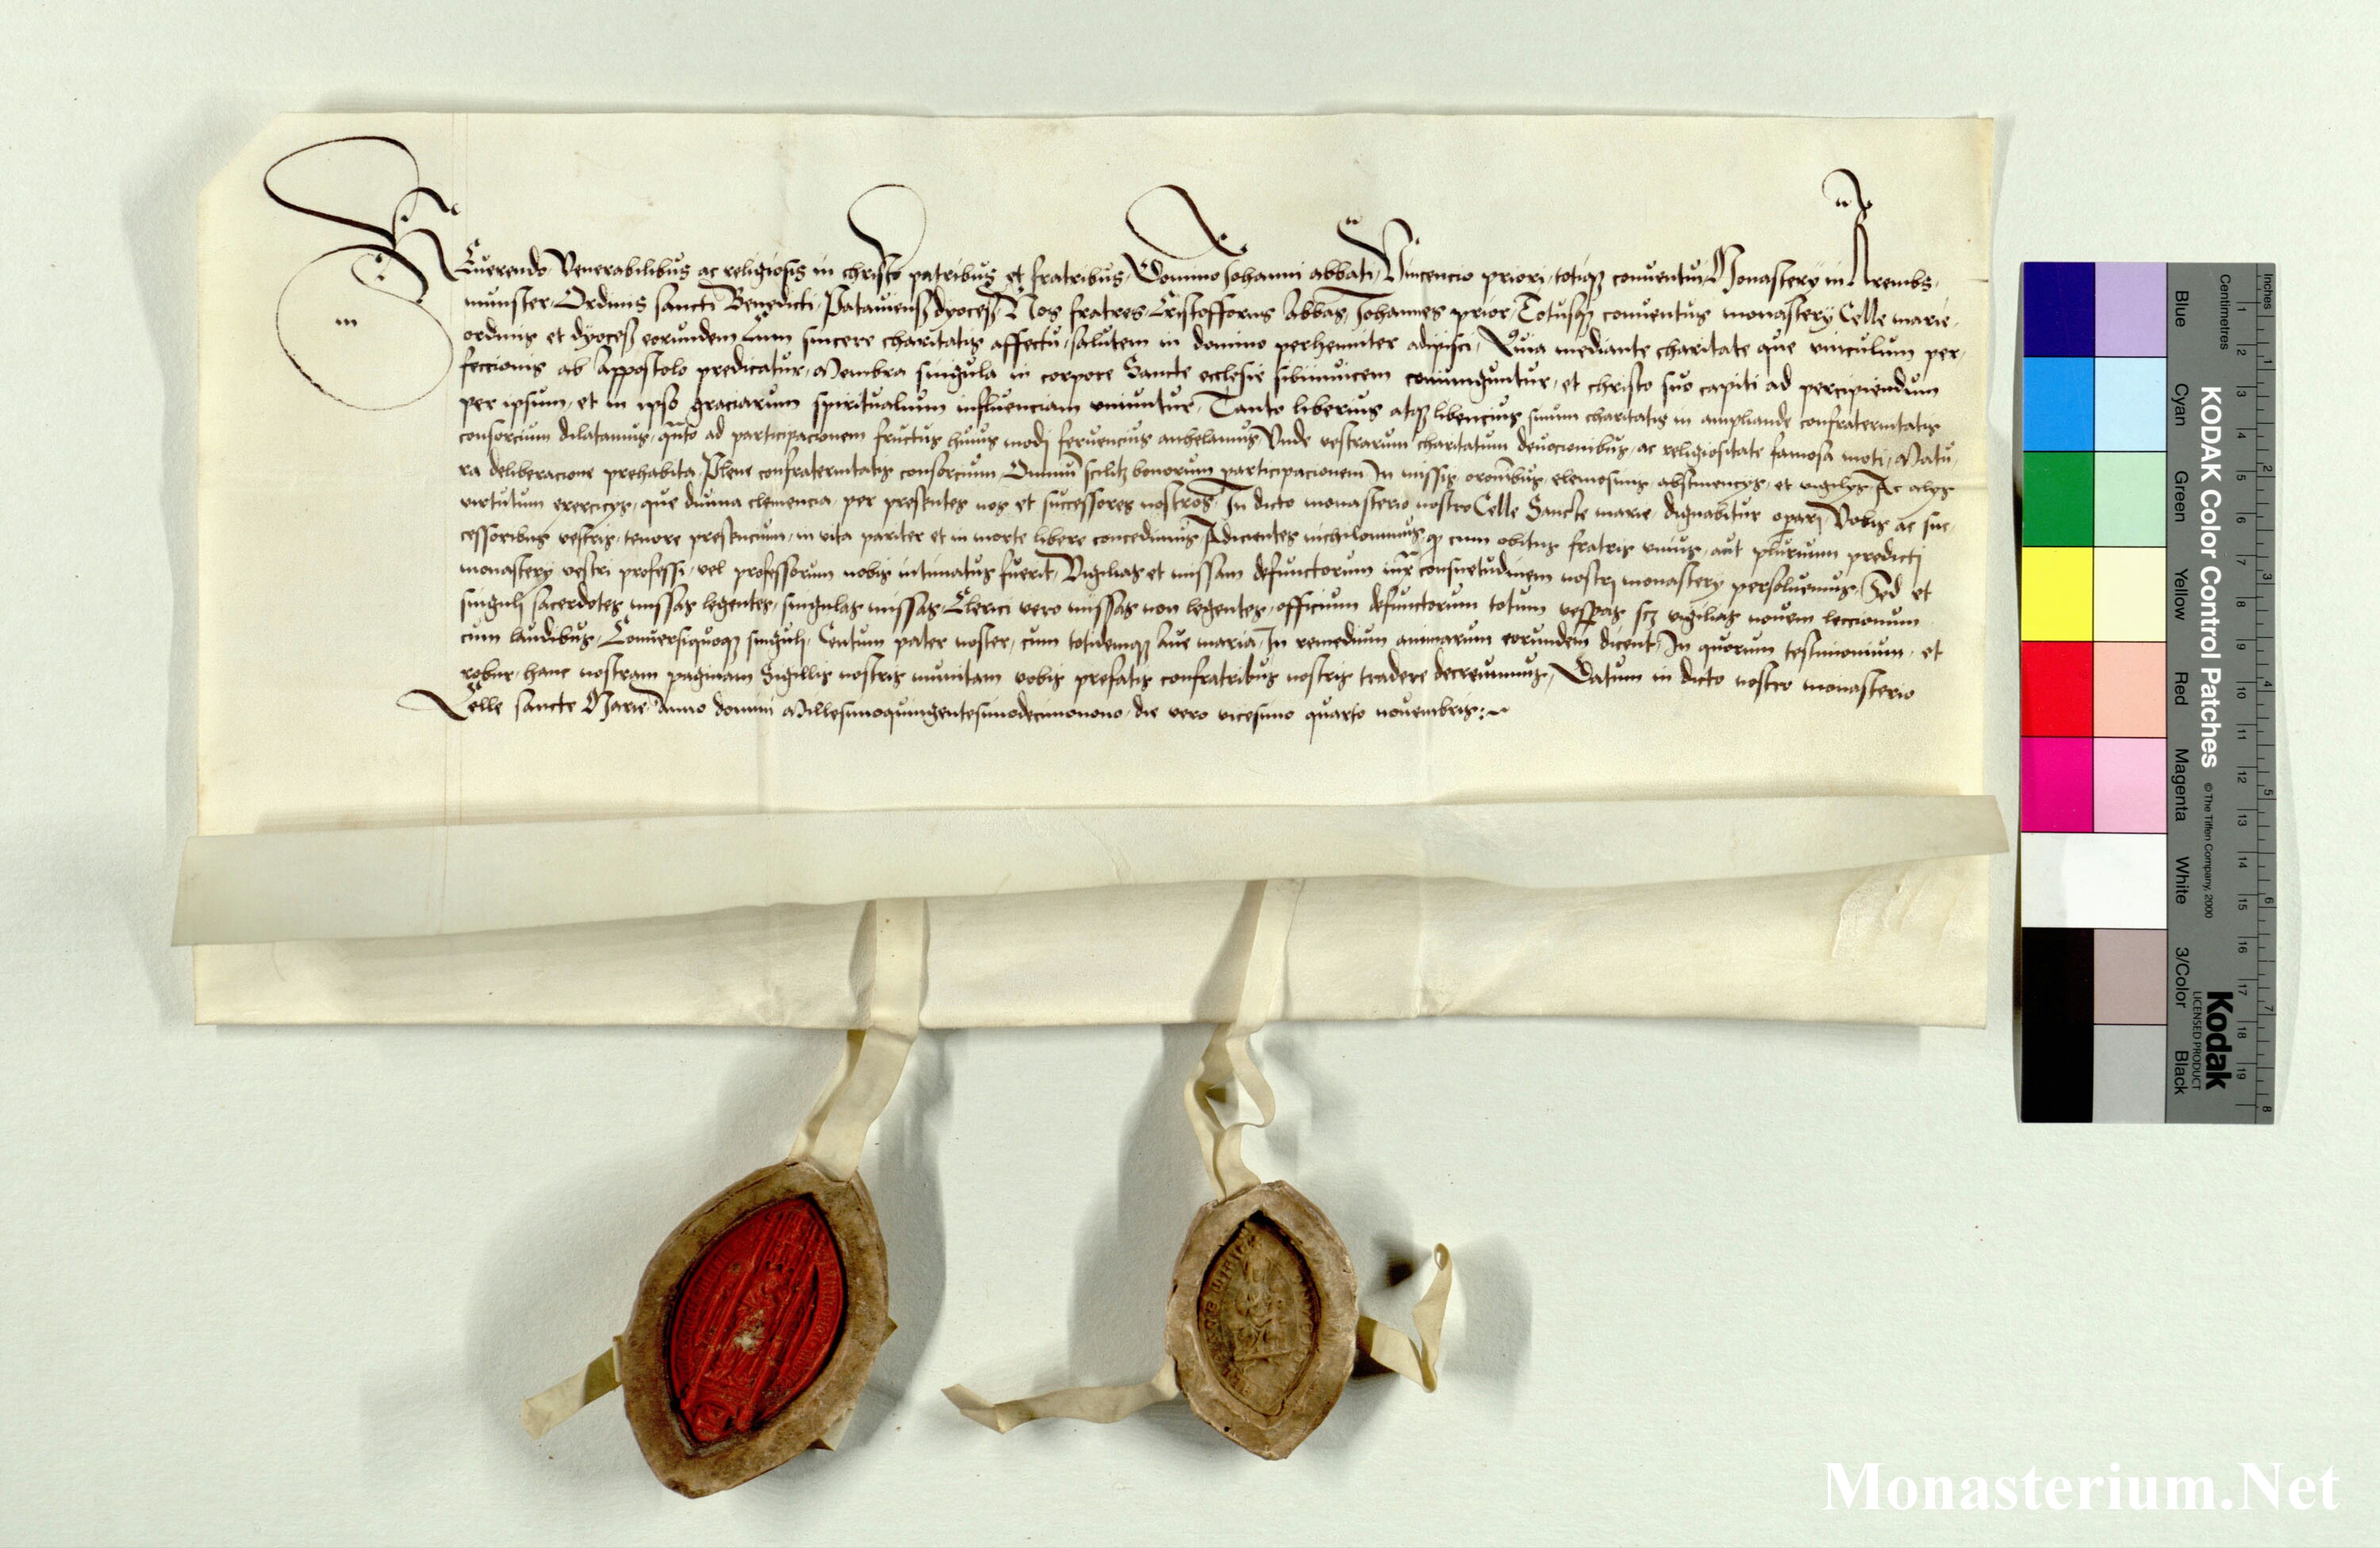 REuerendo Venerabilibus ac religiosis in christo patribus et fratribus Domino Johanni abbati Vincencio priori totiq₃ conuentui Monasterÿ in Krembs
munster Ordinis sancti Benedicti Patauiens₃ dyoceß Nos fratres Cristofforus Abbas Johannes prior Totusq₃ conuentus monasterÿ Celle marie
ordinis et dÿoceß eorundem Cum sincere charitatis affectu salutem in domino perhenniter adipisci Quia mediante charitate que vinculum per
feccionis ab Appostolo predicatur Membra singula in corpore Sancte ecclesie sibiinuicem coniunguntur et christo suo capiti ad percipiendum
per ipsum et in ipso graciarum spiritualium influenciam vniuntur Tanto liberius atq₃ libencius sinum charitatis in ampliande confraternitatis
consorcium dilatamus quāto ad participacionem fructus huius modj feruencius anhelamus Vnde vestrarum charitatum deuocionibus ac religiositate famosa moti Matu
ra deliberacione prehabita Plene confraternitatis consorcium Omniū scilic₃ bonorum participacionem In missis orōnibus elemosinis abstinencÿs et vigilÿs Ac alÿs
virtutum exercicÿs que diuina clemencia per presentes nos et successores nostros In dicto monasterio nostro Celle Sancte marie dignabitur oparj Vobis ac suc
cessoribus vestris tenore presencium in vita pariter et in morte libere concedimus Adicientes nichilominus q cum obitus fratris vnius aut plurium predictj
monasterÿ vestri professi vel professorum nobis intimatus fuerit Vigilias et missam defunctorum iux consuetudinem nostrj monasterÿ persoluemus Sed et
singulj sacerdotes missas legentes singulas missas Clerici vero missas non legentes officium defunctorum totum vespas sc₃ vigilias nouem leccionum
cum laudibus Conuersiquoq₃ singulj Centum pater noster cum totidemq₃ Aue maria In remedium animarum eorundem dicent In quorum testimonium et
robur hanc nostram paginam Sigillis nostris munitam vobis prefatis confratribus nostris tradere decreuimus Datum in dicto nostro monasterio
Celle sancte Marie Anno domini Millesimoquingentesimodecimonono die vero vicesimo quarto nouembris:~
Inches
Centimetres
Blue Cyan Green Yellow Red Magenta White 3/Color Black
KODAK Color Control Patches
© The Tiffen Company, 2000
Kodak
LICENSED PRODUCT
1 2 3 4 5 6 7 8 9 10 11 12 13 14 15 16 17 18 19
1 2 3 4 5 6 7 8
Monasterium.Net